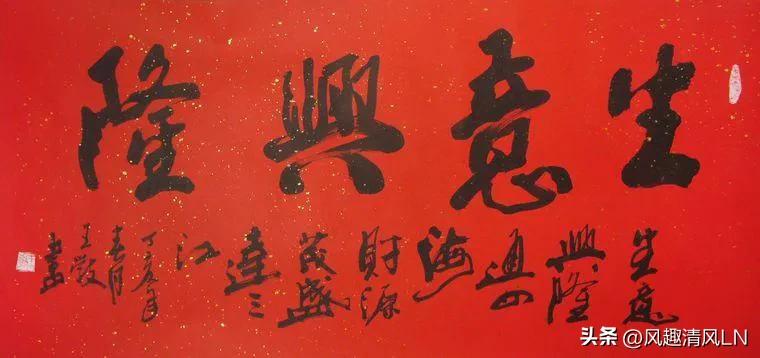 生意興隆
生意
興隆
通四
海
財源
茂盛
達三
江
丁亥年
春月
王
書
头条 @风趣清风LN